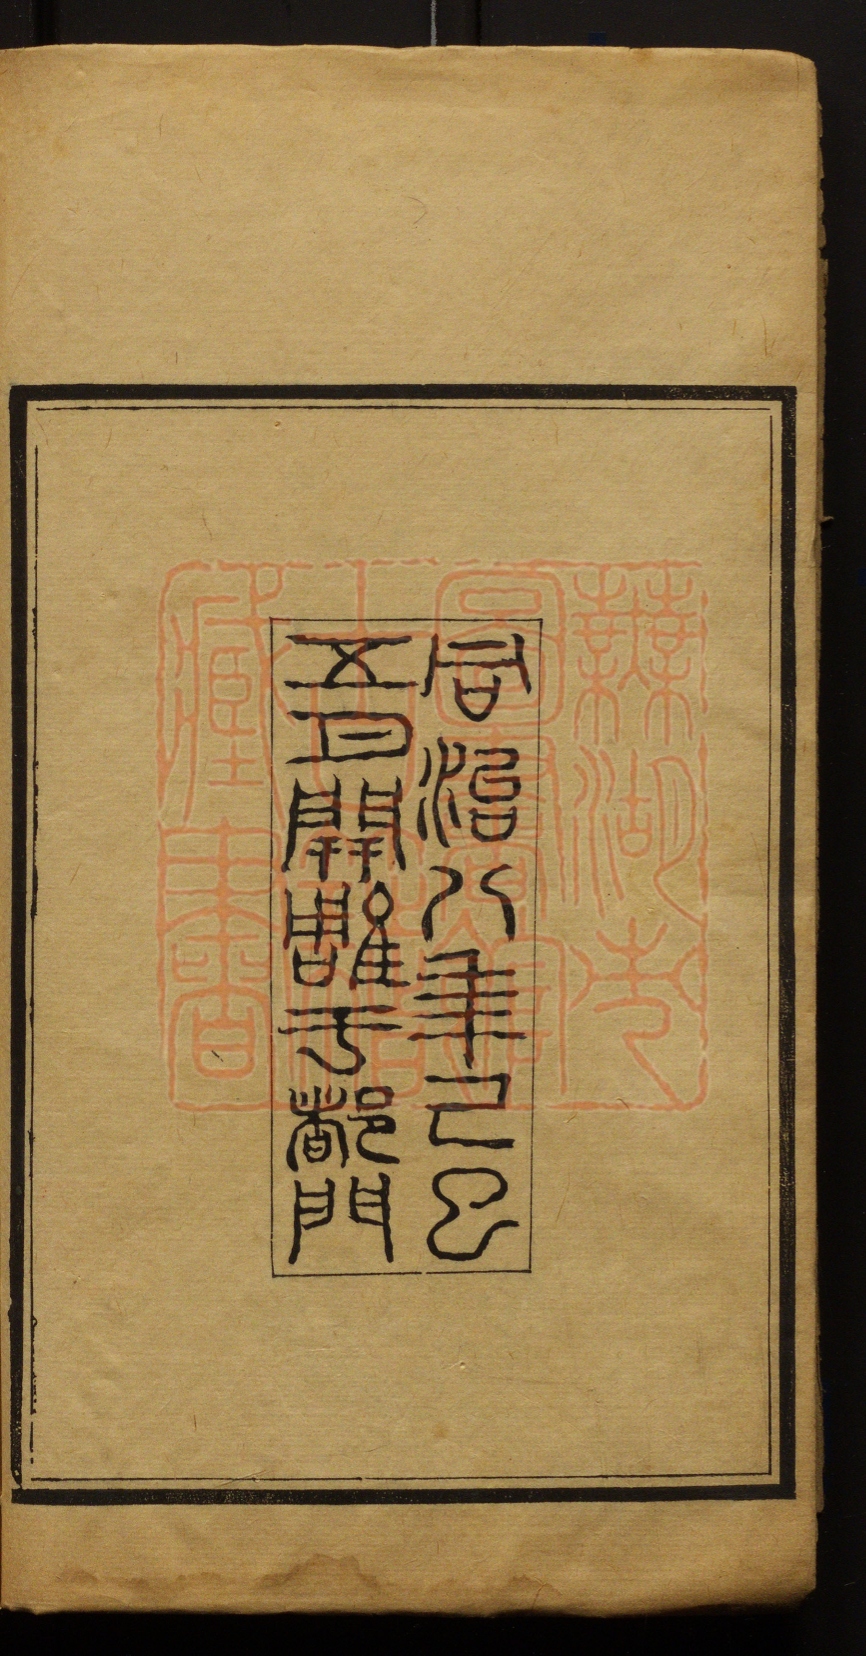 同治八年己巳
五月開雕于都門
藏書